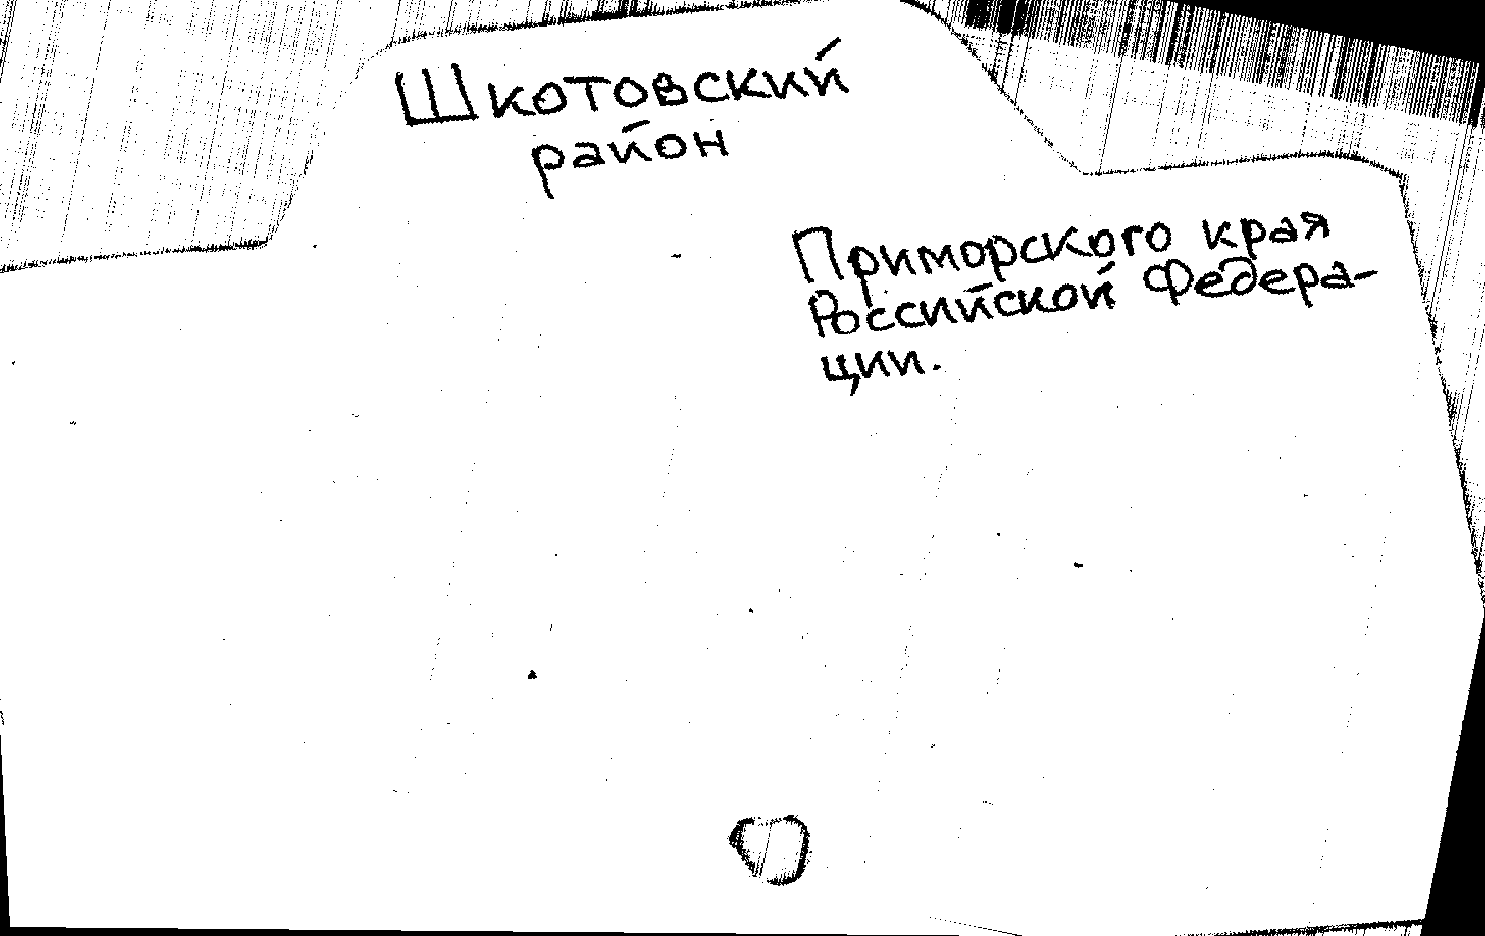 Шкотовский
район
Приморского края
Российской Федера-
ции.